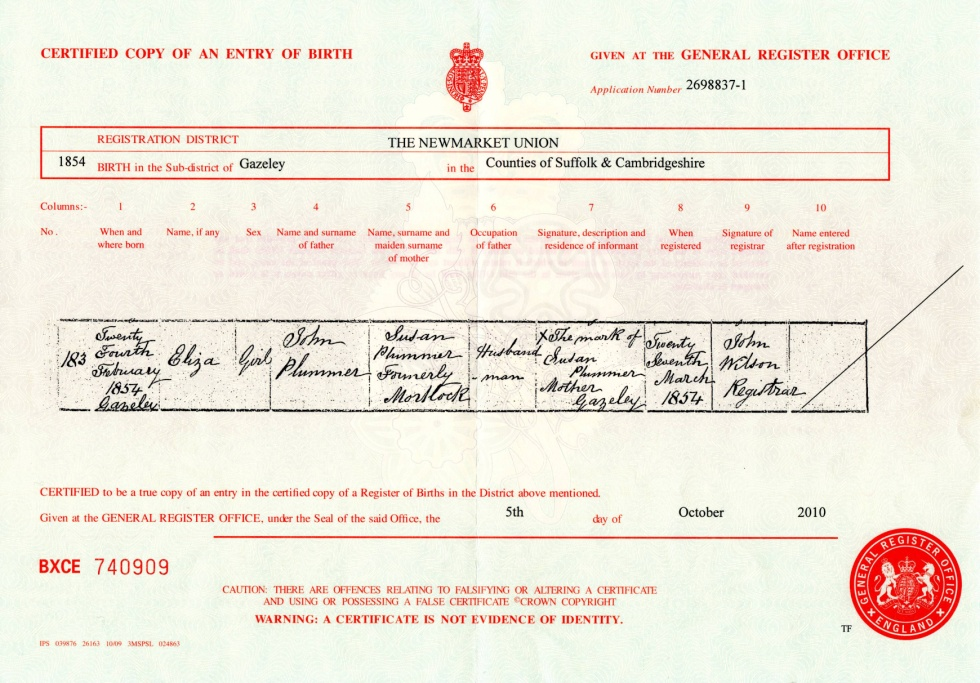 CERTIFIED COPY OF AN ENTRY OF BIRTH
GIVEN AT THE GENERAL REGISTER OFFICE
Application Number 2698837-1
REGISTRATION DISTRICT THE NEWMARKET UNION
1854 BIRTH in the Sub-district of Gazeley in the Counties of Suffolk & Cambridgeshire
Columns:- 1 2 3 4 5 6 7 8 9 10
No. When and where born Name, if any Sex Name and surname of father Name, surname and maiden surname of mother Occupation of father Signature, description and residence of informant When registered Signature of registrar Name entered after registration
183
Twenty
Fourth
February
1854
Gazeley
Eliza
Girl
John
Plummer
Susan
Plummer
Formerly
Mortlock
Husband
-man
X The mark of
Susan
Plummer
Mother
Gazeley
Twenty
Seventh
March
1854
John
Wilson
Registrar
CERTIFIED to be a true copy of an entry in the certified copy of a Register of Births in the District above mentioned.
Given at the GENERAL REGISTER OFFICE, under the Seal of the said Office, the 5th day of October 2010
BXCE 740909
CAUTION: THERE ARE OFFENCES RELATING TO FALSIFYING OR ALTERING A CERTIFICATE
AND USING OR POSSESSING A FALSE CERTIFICATE ©CROWN COPYRIGHT
WARNING: A CERTIFICATE IS NOT EVIDENCE OF IDENTITY.
GENERAL REGISTER OFFICE
ENGLAND
TF
IPS 039876 26163 10/09 3MSPSL 024863